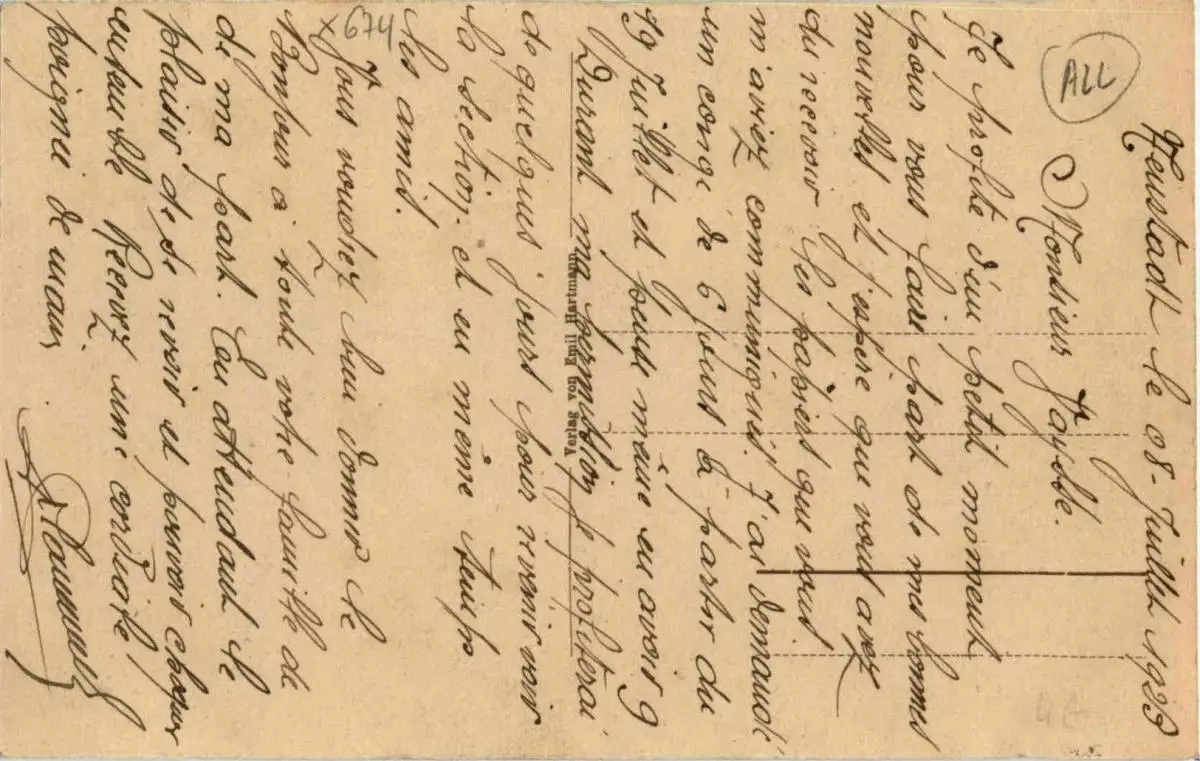 Neustadt le 08-Juillet 1929
ALL
Monsieur Jaysse.
Je profite d'un petit moment
pour vous faire part de mes bonnes
nouvelles et j'espère que vous avez
du recevoir les papiers que vous
m'aviez communiqués. J'ai demandé
un congé de 6 jours à partir du
19 Juillet et pense même en avoir 9
Durant ma permission je profiterai
Verlag von Emil Hartmann
de quelques jours pour revenir voir
la section et en même temps
les amis.
x 674
Vous voudrez bien donner le
Bonjour à toute votre famille de
de ma part. En attendant le
plaisir de se revoir et pouvoir
ensemble Recevez une cordiale
poignée de main.
4€